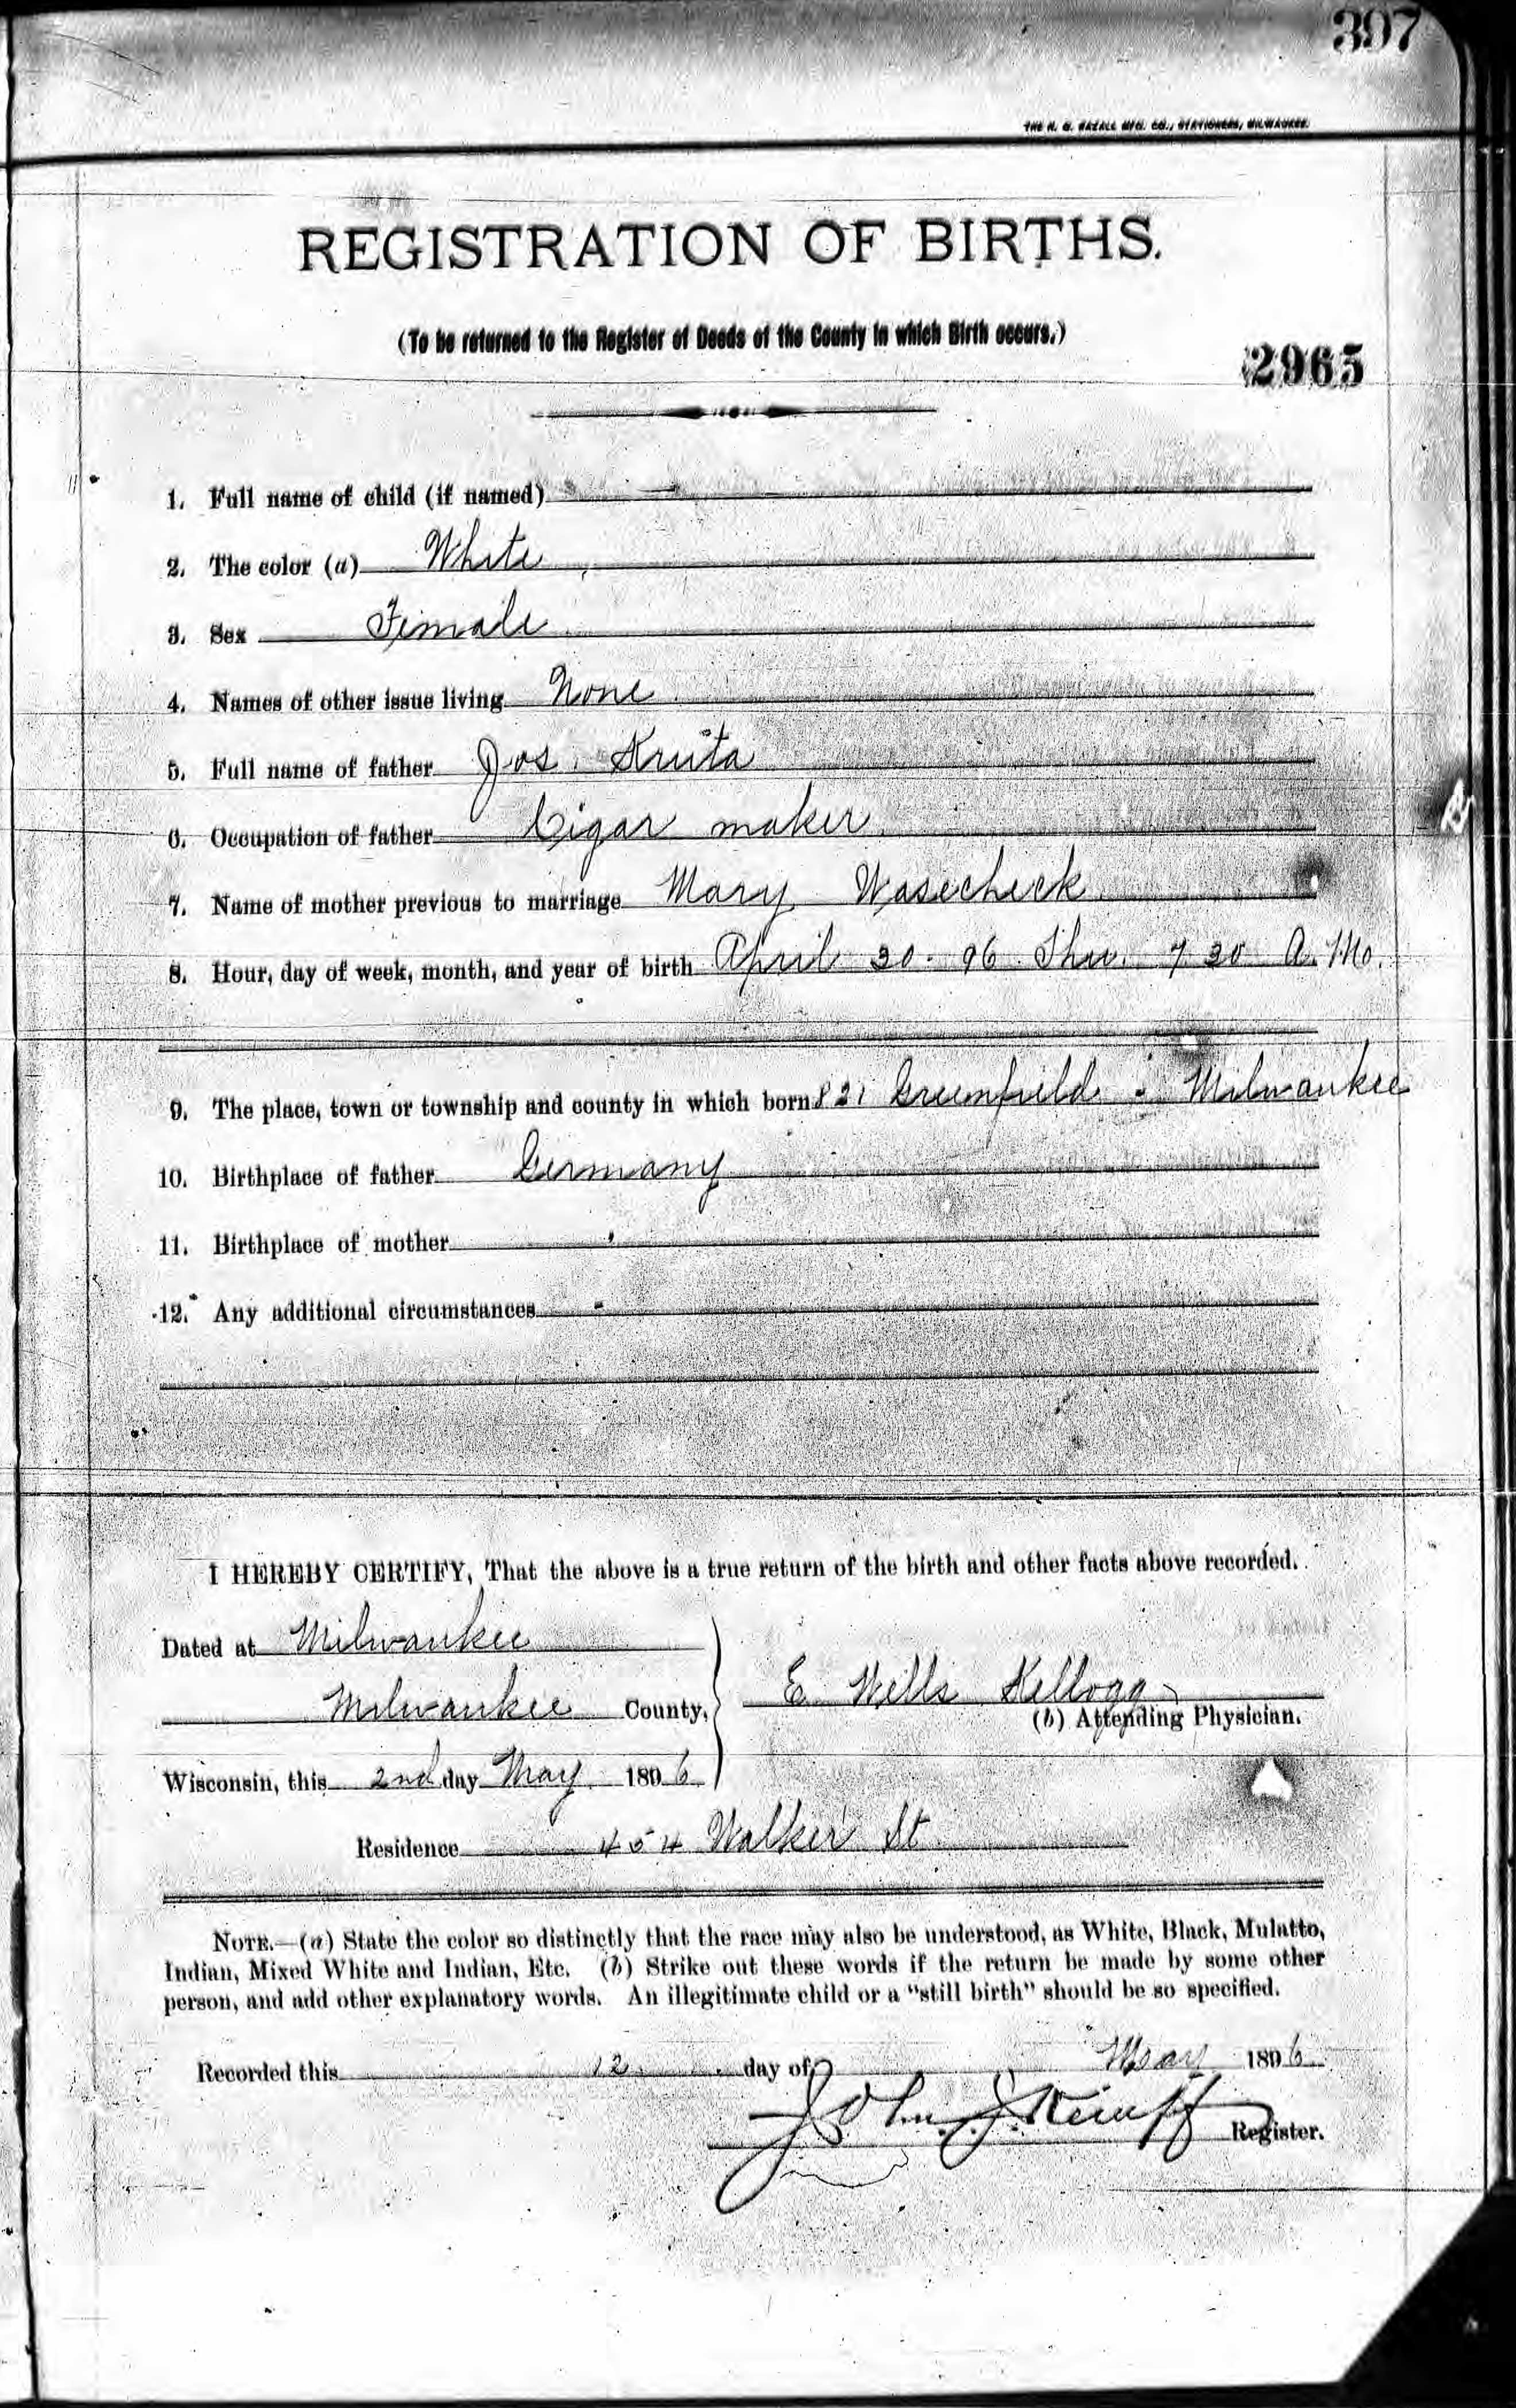 397
THE H. G. RAZALL MFG. CO., STATIONERS, MILWAUKEE.
REGISTRATION OF BIRTHS.
(To be returned to the Register of Deeds of the County in which Birth occurs.)
2965
1. Full name of child (if named)
2. The color (a) White
3. Sex Female
4. Names of other issue living None
5. Full name of father Jos. Kruta
6. Occupation of father Cigar maker
7. Name of mother previous to marriage Mary Wasecheck
8. Hour, day of week, month, and year of birth April 30. 96 Thu. 7 30 A. M.
9. The place, town or township and county in which born 821 Greenfield Milwaukee
10. Birthplace of father Germany
11. Birthplace of mother "
12. Any additional circumstances
I HEREBY CERTIFY, That the above is a true return of the birth and other facts above recorded.
Dated at Milwaukee
Milwaukee County,
E Wells Kellogg
(b) Attending Physician.
Wisconsin, this 2nd day May 1896
Residence 454 Walker St
NOTE.—(a) State the color so distinctly that the race may also be understood, as White, Black, Mulatto,
Indian, Mixed White and Indian, Etc. (b) Strike out these words if the return be made by some other
person, and add other explanatory words. An illegitimate child or a "still birth" should be so specified.
Recorded this 12 day of May 1896
John J. Kempf Register.